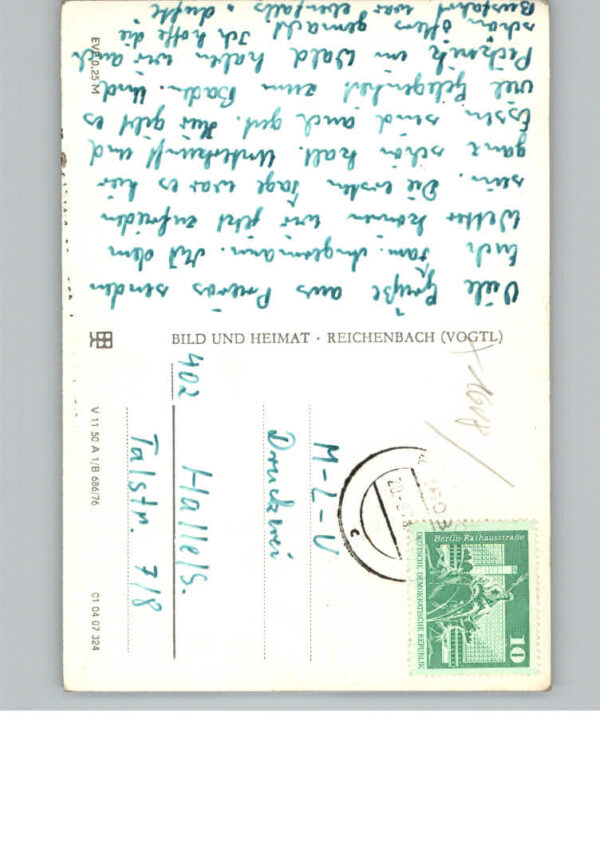 Viele Grüße aus Prieros senden
Euch Fam. Angermann. Mit dem
Wetter können wir jetzt zufrieden
sein. Die ersten Tage war es hier
ganz schön kalt. Unterkunft und
Essen sind auch gut. Hier gibt es
viel Gelegenheit zum Baden. Und
Picknick im Wald haben wir auch
schon öfters gemacht. Ich hoffe die
Busfahrt war ebenfalls dufte
EVP 0,25 M
BILD UND HEIMAT · REICHENBACH (VOGTL)
V 11 50 A 1/B 686/76
01 04 07 324
M-L-U
Druckerei
402 Halle/S.
Talstr. 7/8
Berlin-Rathausstraße
10
DEUTSCHE DEMOKRATISCHE REPUBLIK